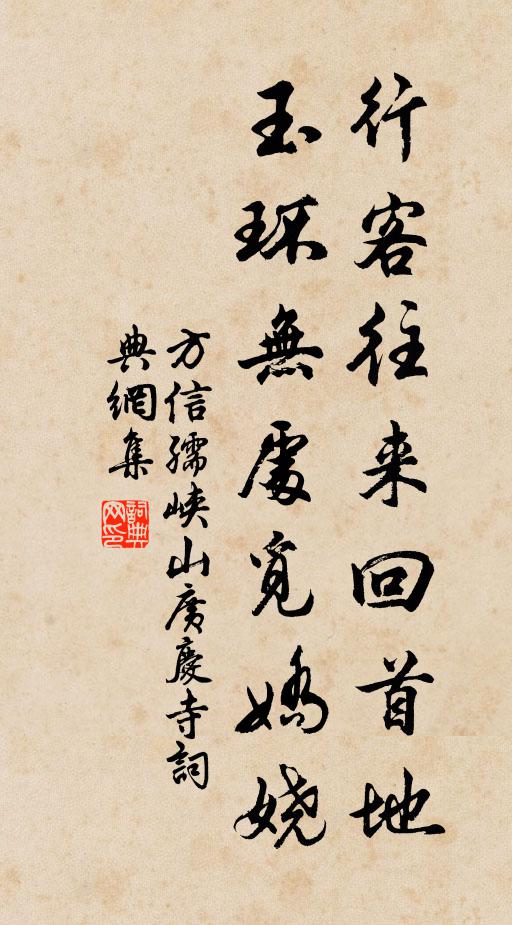 行客往来回首地
玉环無處覓嬌嬈
方信孺峽山廣慶寺詞
典網集
詞典網印